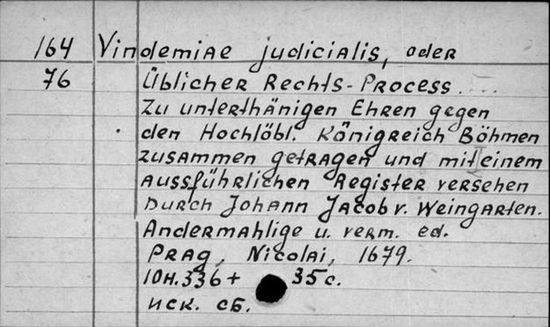 164 Vindemiae judicialis, oder
76 Üblicher Rechts-Process ....
Zu unterthänigen Ehren gegen
den Hochlöbl. Königreich Böhmen
zusammen getragen und mit einem
ausführlichen Register versehen
durch Johann Jacob v. Weingarten.
Andermahlige u. verm. ed.
Prag, Nicolai, 1679.
10H.336+ 35c.
иск. сб.